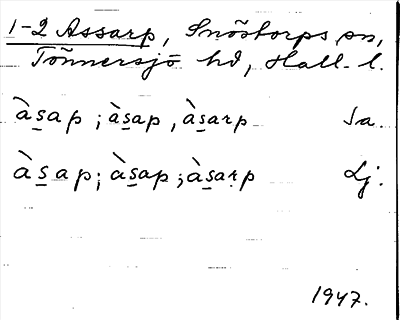 1-2 Assarp, Snöstorps sn,
Tönnersjö hd, Hall. l.
àsap; àsap, àsarp Sa.
àsap; àsap; àsarp Lj.
1947.